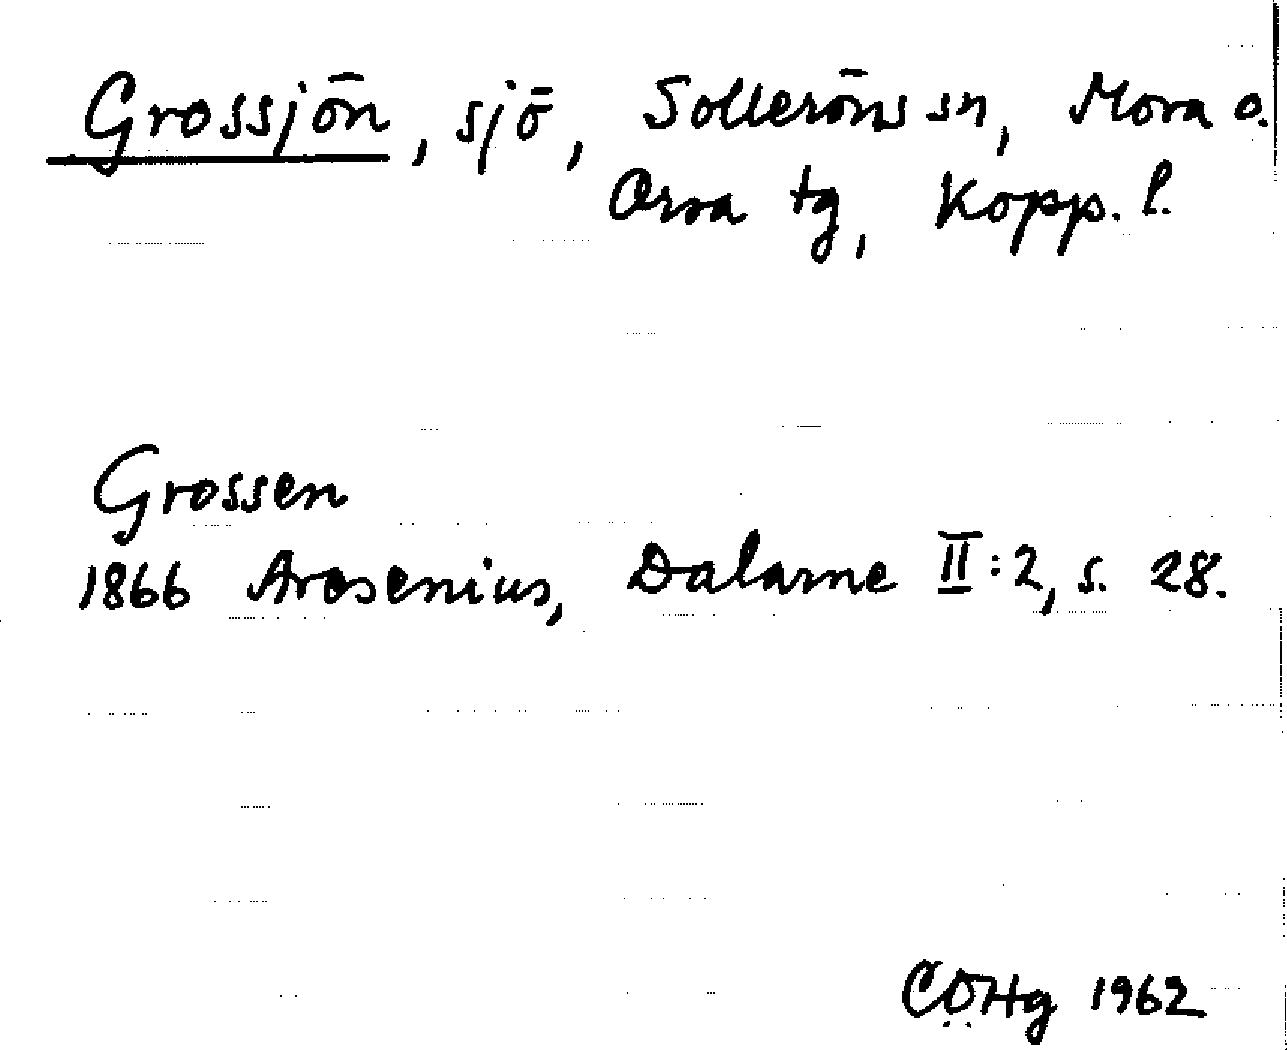 Grossjön, sjö, Solleröns sn, Mora o.
Orsa tg, Kopp. l.
Grossen
1866 Arosenius, Dalarne II:2, s. 28.
CÖHg 1962